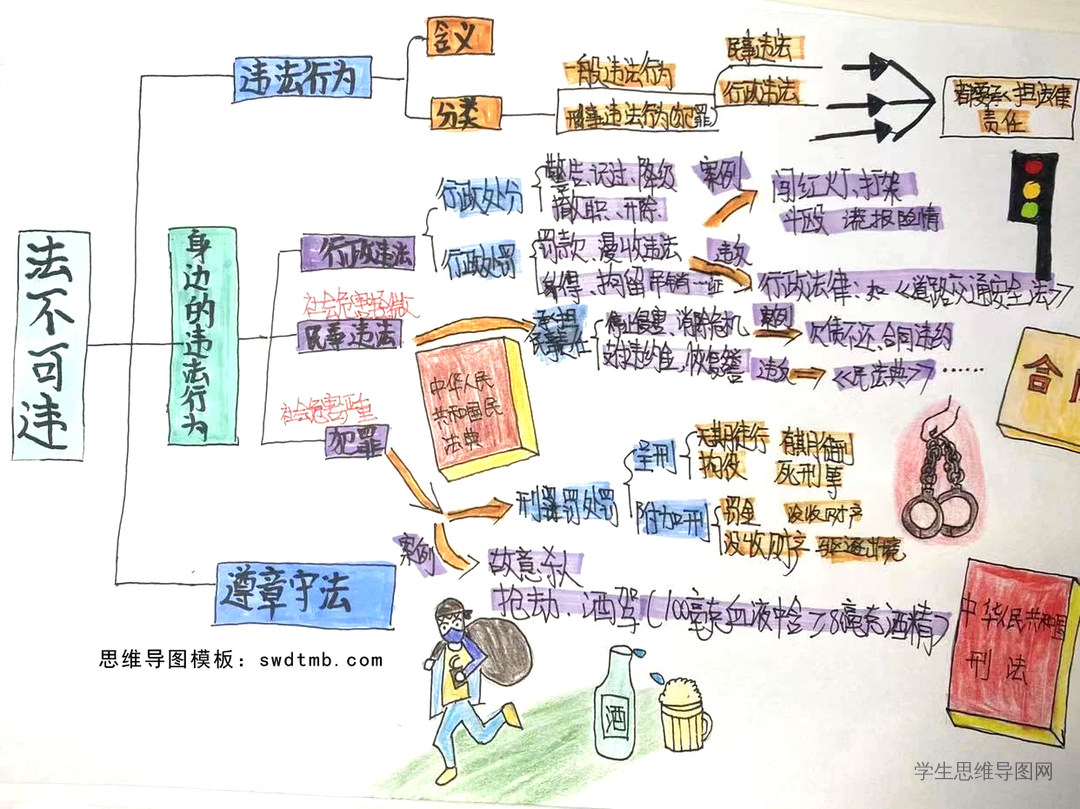 法不可违
违法行为
含义
分类
一般违法行为
刑事违法行为(犯罪)
民事违法
行政违法
都要承担法律
责任
身边的违法行为
行政违法
行政处分
警告、记过、降级
撤职、开除
行政处罚
罚款、没收违法
所得、拘留 吊销证
案例
闯红灯、打架
斗殴 谎报险情
违反
行政法律: 如《道路交通安全法》
社会危害轻微
民事违法
承担
民事责任
停止侵害、消除危机
支付违约金、恢复名誉
案例
欠债不还、合同违约
违反
《民法典》……
中华人民
共和国民
法典
合同
社会危害严重
犯罪
刑罚处罚
主刑
无期徒刑 有期徒刑
拘役 死刑
附加刑
罚金 没收财产
没收财产 驱逐出境
案例
故意杀人
抢劫、酒驾(100毫克血液中含≥8毫克酒精)
遵章守法
思维导图模板：swdtmb.com
酒
中华人民共和国
刑法
学生思维导图网